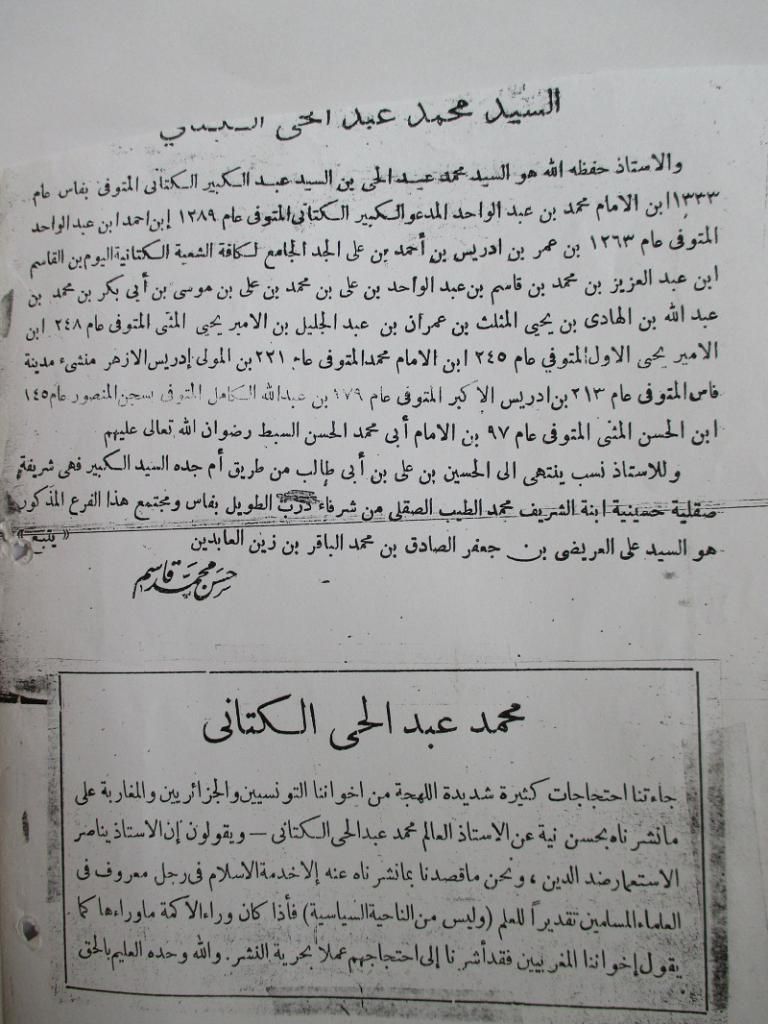 السيد محمد عبد الحى
والاستاذ حفظه الله هو السيد محمد عبد الحى بن السيد عبد الكبير الكتانى المتوفى بفاس عام
١٣٣٣ ابن الامام محمد بن عبد الواحد المدعو الكبير الكتانى المتوفى عام ١٢٨٩ إبن احمد ابن عبد الواحد
المتوفى عام ١٢٦٣ بن عمر بن ادريس بن أحمد بن على الجد الجامع لكافة الشعبة الكتانية اليوم بن القاسم
ابن عبد العزيز بن محمد بن قاسم بن عبد الواحد بن على بن محمد بن على بن موسى بن أبى بكر بن محمد بن
عبد الله بن الهادى بن يحيى المثلث بن عمران بن عبد الجليل بن الامير يحيى المثنى المتوفى عام ٢٤٨ ابن
الامير يحيى الاول المتوفي عام ٢٤٥ ابن الامام محمد المتوفى عام ٢٢١ بن المولى إدريس الازهر منشىء مدينة
فاس المتوفى عام ٢١٣ بن ادريس الاكبر المتوفى عام ١٧٩ بن عبد الله الكامل المتوفى بسجن المنصور عام ١٤٥
ابن الحسن المثنى المتوفى عام ٩٧ بن الامام أبى محمد الحسن السبط رضوان الله تعالى عليهم
وللاستاذ نسب ينتهى الى الحسين بن على بن أبى طالب من طريق أم جده السيد الكبير فهى شريفة
صقلية حسينية ابنة الشريف محمد الطيب الصقلى من شرفاء درب الطويل بفاس ومجتمع هذا الفرع المذكور
هو السيد على العريضى بن جعفر الصادق بن محمد الباقر بن زين العابدين « يتبع »
حسن محمد قاسم
محمد عبد الحى الكتانى
جاءتنا احتجاجات كثيرة شديدة اللهجة من اخواننا التونسيين والجزائريين والمغاربة على
مانشرناه بحسن نية عن الاستاذ العالم محمد عبد الحى الكتانى — ويقولون إن الاستاذ يناصر
الاستعمار ضد الدين ، ونحن ماقصدنا بمانشرناه عنه إلا خدمة الاسلام فى رجل معروف فى
العلماء المسلمين تقديراً للعلم (وليس من الناحية السياسية) فأذا كان وراء الأكمة ماوراءها كما
يقول إخواننا المغربيين فقد أشرنا إلى احتجاجهم عملا بحرية النشر. والله وحده العليم بالحق